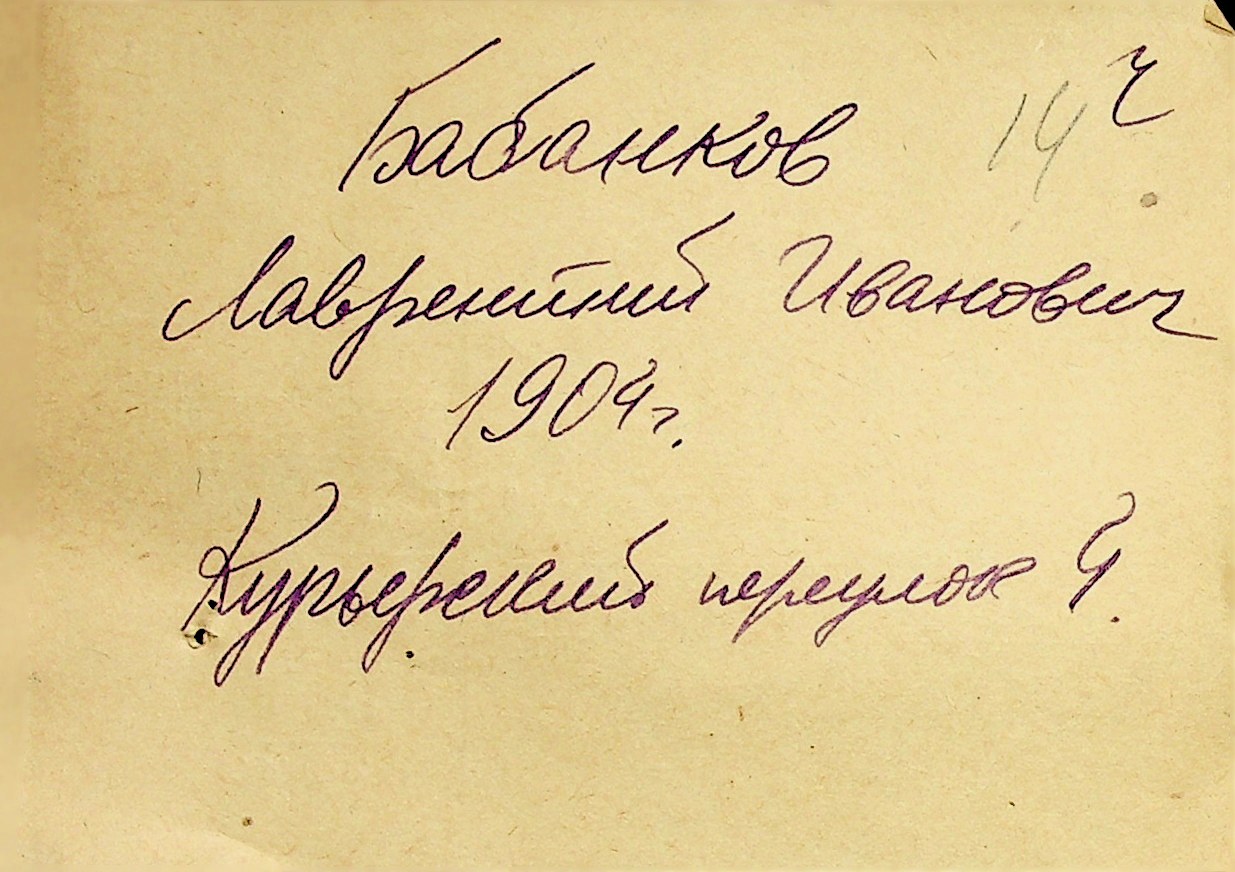 Бабанков 14 ч
Лаврентий Иванович
1904 г.
Курьерский переулок 4.